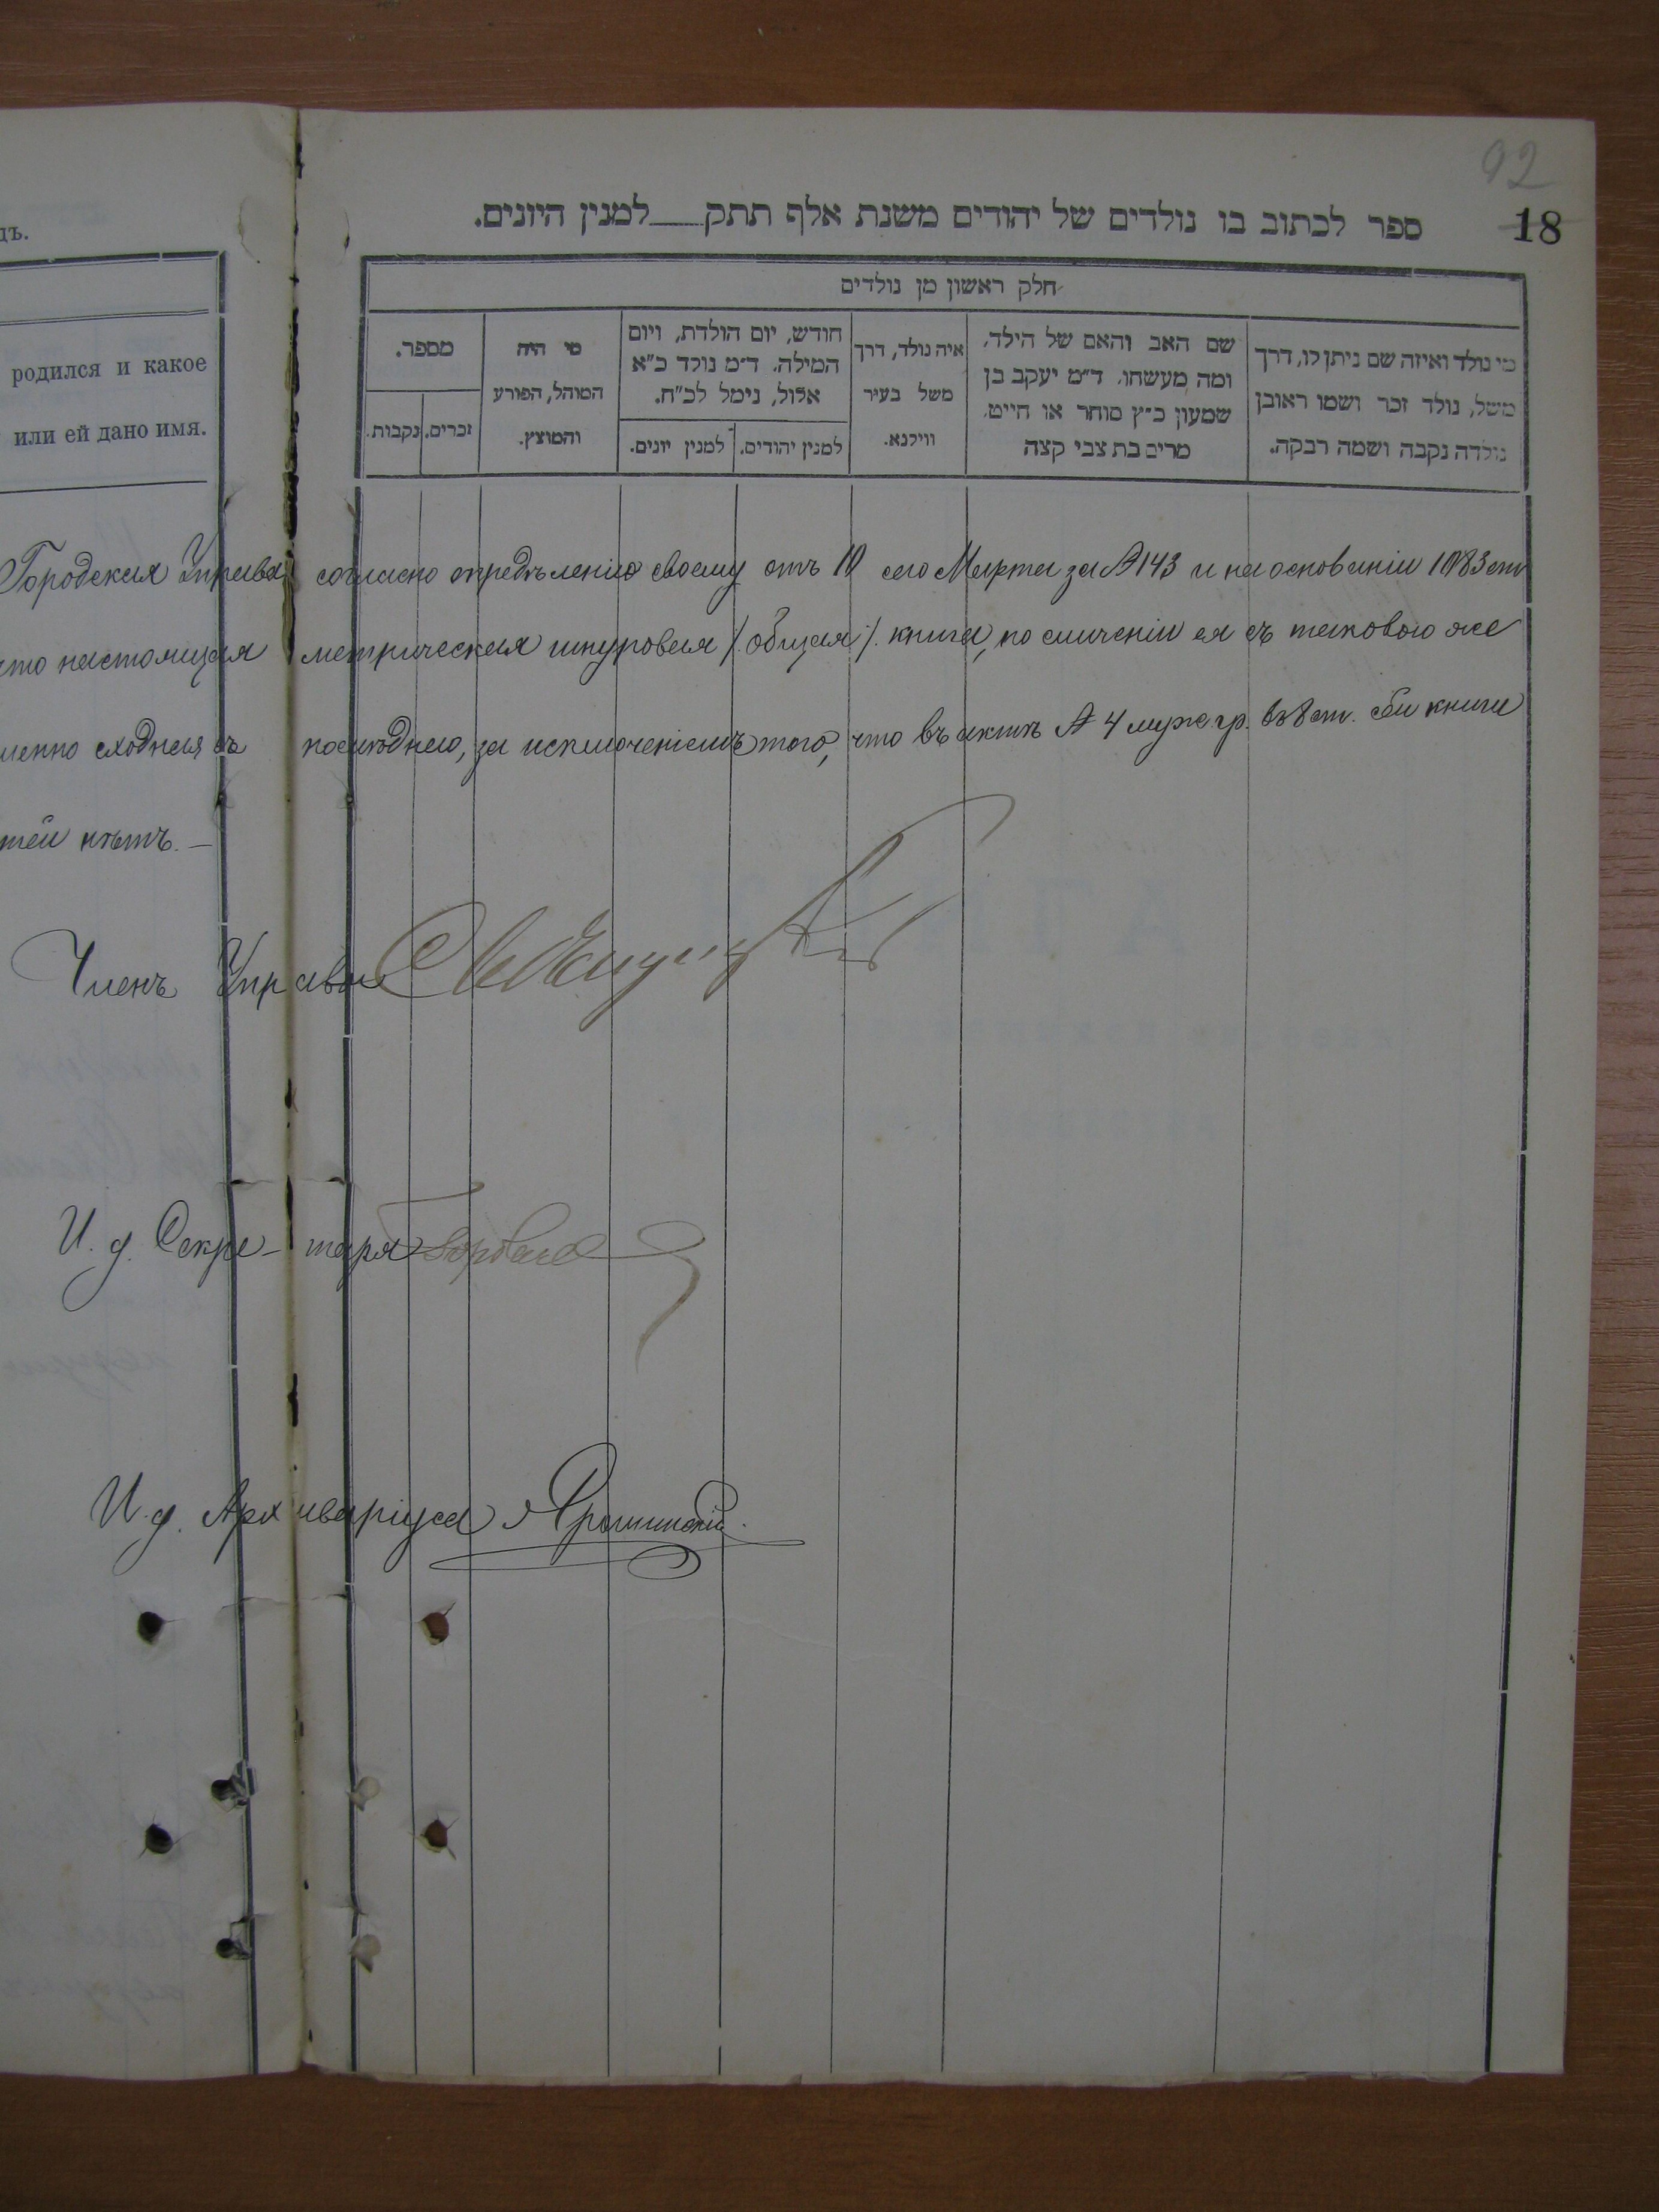 92
18
ספר לכתוב בו נולדים של יהודים משנת אלף תתק למנין היונים.
дъ.
חלק ראשון מן נולדים
родился и какое
или ей дано имя.
מי נולד ואיזה שם ניתן לו, דרך
משל, נולד זכר ושמו ראובן
נולדה נקבה ושמה רבקה.
שם האב והאם של הילד,
ומה מעשהו. ד״מ יעקב בן
שמעון כ״ץ סוחר או חייט,
מרים בת צבי קצה
איה נולד, דרך
משל בעיר
ווילנא.
חודש, יום הולדת, ויום
המילה. ד״מ נולד כ״א
אלול, נימל לכ״ח.
למנין יהודים.
למנין יונים.
מי היה
המוהל, הפורע
והמוצץ.
מספר.
זכרים.
נקבות.
Городская Управа согласно определѣнію своему отъ 10 сего Марта за № 143 и на основаніи 1083 ст
что настоящая метрическая шнуровая /. общая /. книга, по сличеніи ея съ таковою же
сходная съ послѣднею, за исключеніемъ того, что въ актѣ № 4 муж. гр. въ 8 ст. книги
нѣтъ. —
Членъ Управы
И. д. Секретаря
И. д. Архиваріуса